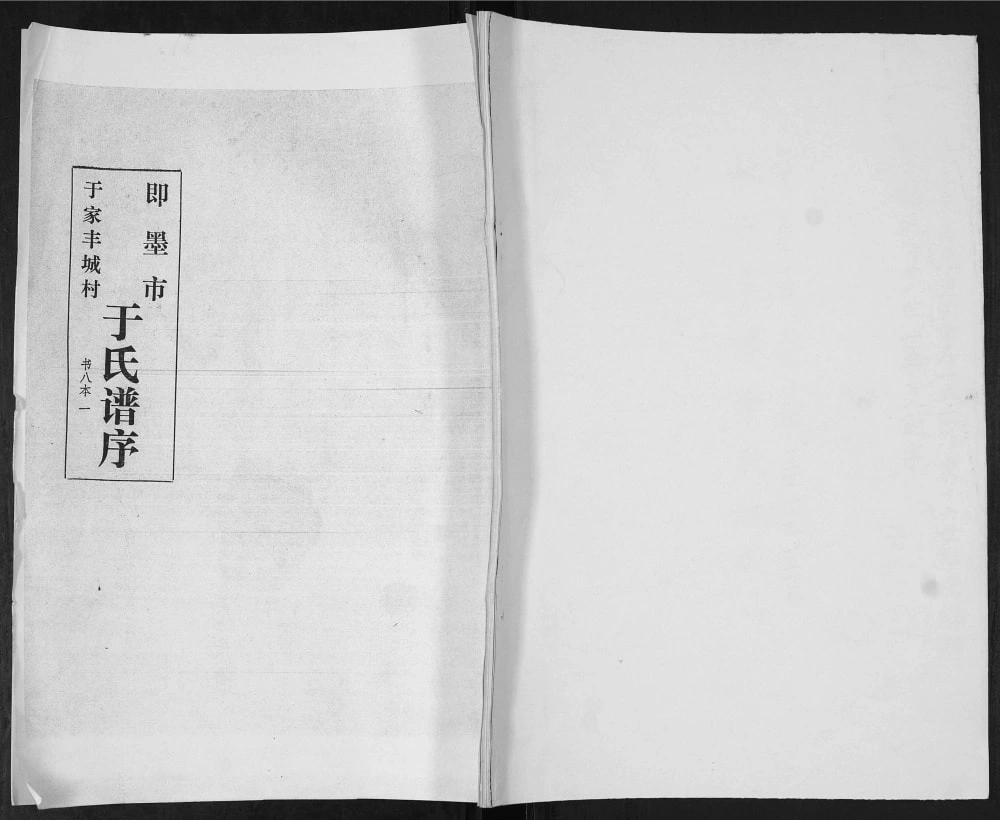 即墨市
于家丰城村
于氏谱序
书八本一